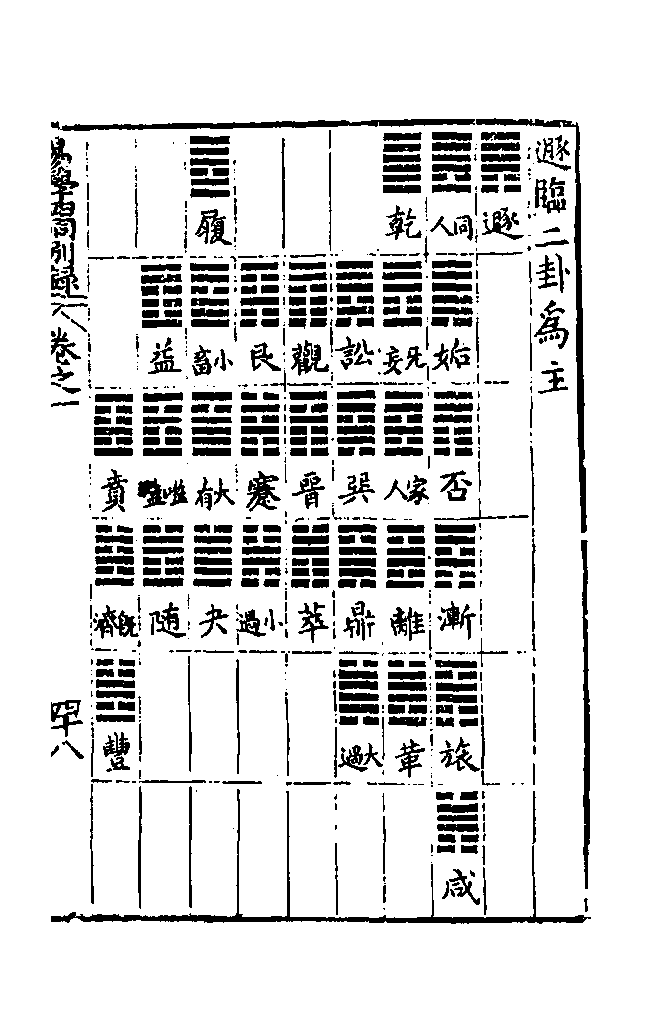 遯臨二卦爲主
遯
同人
姤
否
漸
旅
咸
乾
无妄
家人
離
革
訟
巽
鼎
大過
觀
晉
萃
艮
蹇
小過
履
小畜
大有
夬
益
噬嗑
随
賁
既濟
豐
易學四同別録 卷之一 四十八